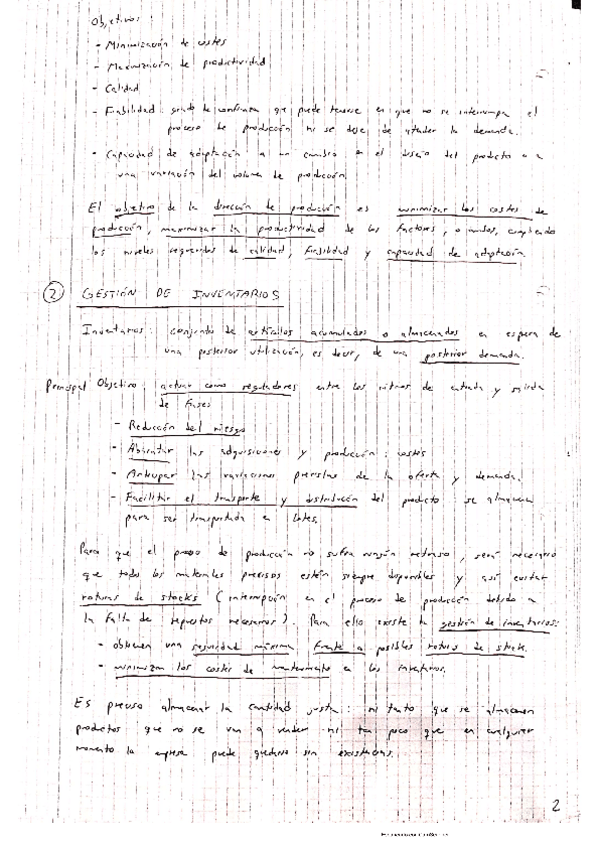 Objetivos:
- Minimización de costes
- Maximización de productividad
- Calidad
- Fiabilidad: grado de confianza que puede tenerse en que no se interrumpa el
proceso de producción ni se deje de atender la demanda.
- Capacidad de adaptación a un cambio en el diseño del producto o a
una variación del volumen de producción.
El objetivo de la dirección de producción es minimizar los costes de
producción, maximizar la productividad de los factores, o ambos, cumpliendo
los niveles requeridos de calidad, fiabilidad y capacidad de adaptación.
② GESTIÓN DE INVENTARIOS
Inventarios: conjunto de artículos acumulados o almacenados en espera de
una posterior utilización, es decir, de una posterior demanda.
Principal Objetivo: actuar como reguladores entre los ritmos de entrada y salida
de fases
- Reducción del riesgo
- Abaratar las adquisiciones y producción: costes
- Anticipar las variaciones previstas de la oferta y demanda.
- Facilitar el transporte y distribución del producto se almacena
para ser transportada en lotes.
Para que el proceso de producción no sufra ningún retraso, será necesario
que todos los materiales precisos estén siempre disponibles y así evitar
roturas de stocks (interrupción en el proceso de producción debido a
la falta de repuestos necesarios). Para ello existe la gestión de inventarios:
- obtienen una seguridad máxima frente a posibles roturas de stock.
- minimizan los costes de mantenimiento en los inventarios.
Es preciso almacenar la cantidad justa: ni tanto que se almacenen
productos que no se van a vender ni tan poco que en cualquier
momento la empresa puede quedarse sin existencias.
2